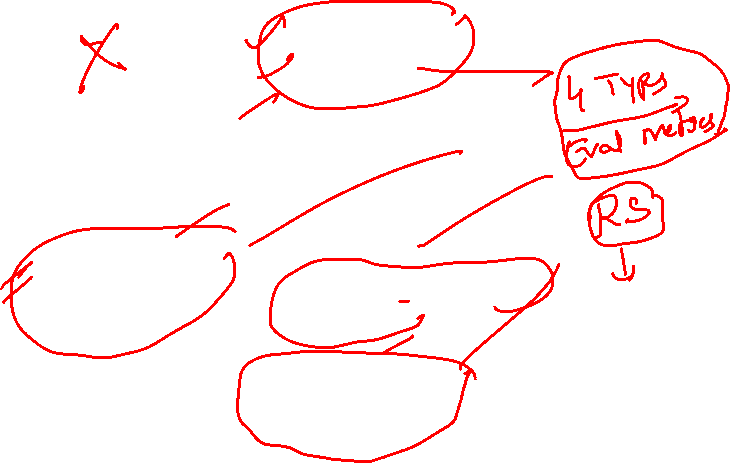 4 Types
Eval metrics
RS